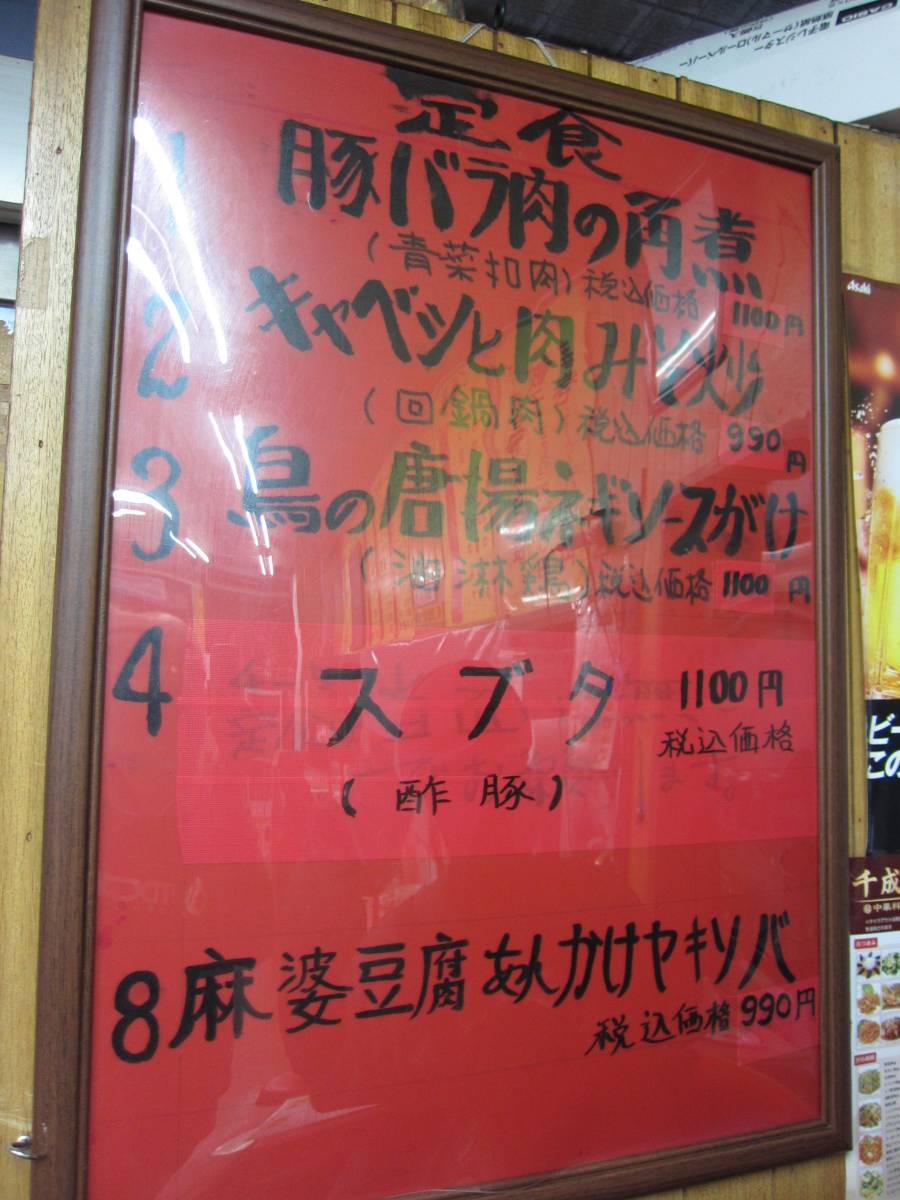 定食
1 豚バラ肉の角煮
(青菜扣肉)税込価格 1100円
2 キャベツと肉みそ炒
(回鍋肉)税込価格 990円
3 鳥の唐揚ネギソースがけ
(油淋鶏)税込価格 1100円
4 スブタ 1100円
税込価格
(酢豚)
8 麻婆豆腐あんかけヤキソバ
税込価格 990円
CASIO
電子レジスター
感熱紙(サーマル)ロールペーパー
Asahi
ビー
この
千成
中華料